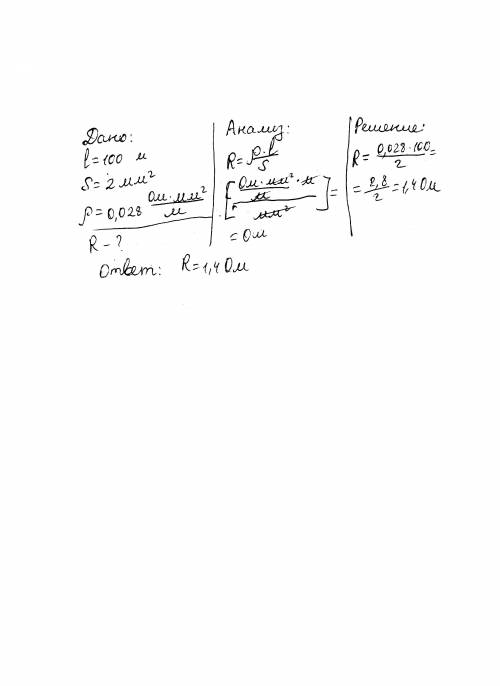 Дано:
l=100 м
S=2 мм²
ρ=0,028 Ом·мм²/м
R-?
Анализ:
R=ρ·l/S
[Ом·мм²·м/м/мм²]=
=Ом
Решение:
R=0,028·100/2=
=2,8/2=1,4 Ом
Ответ: R=1,4 Ом